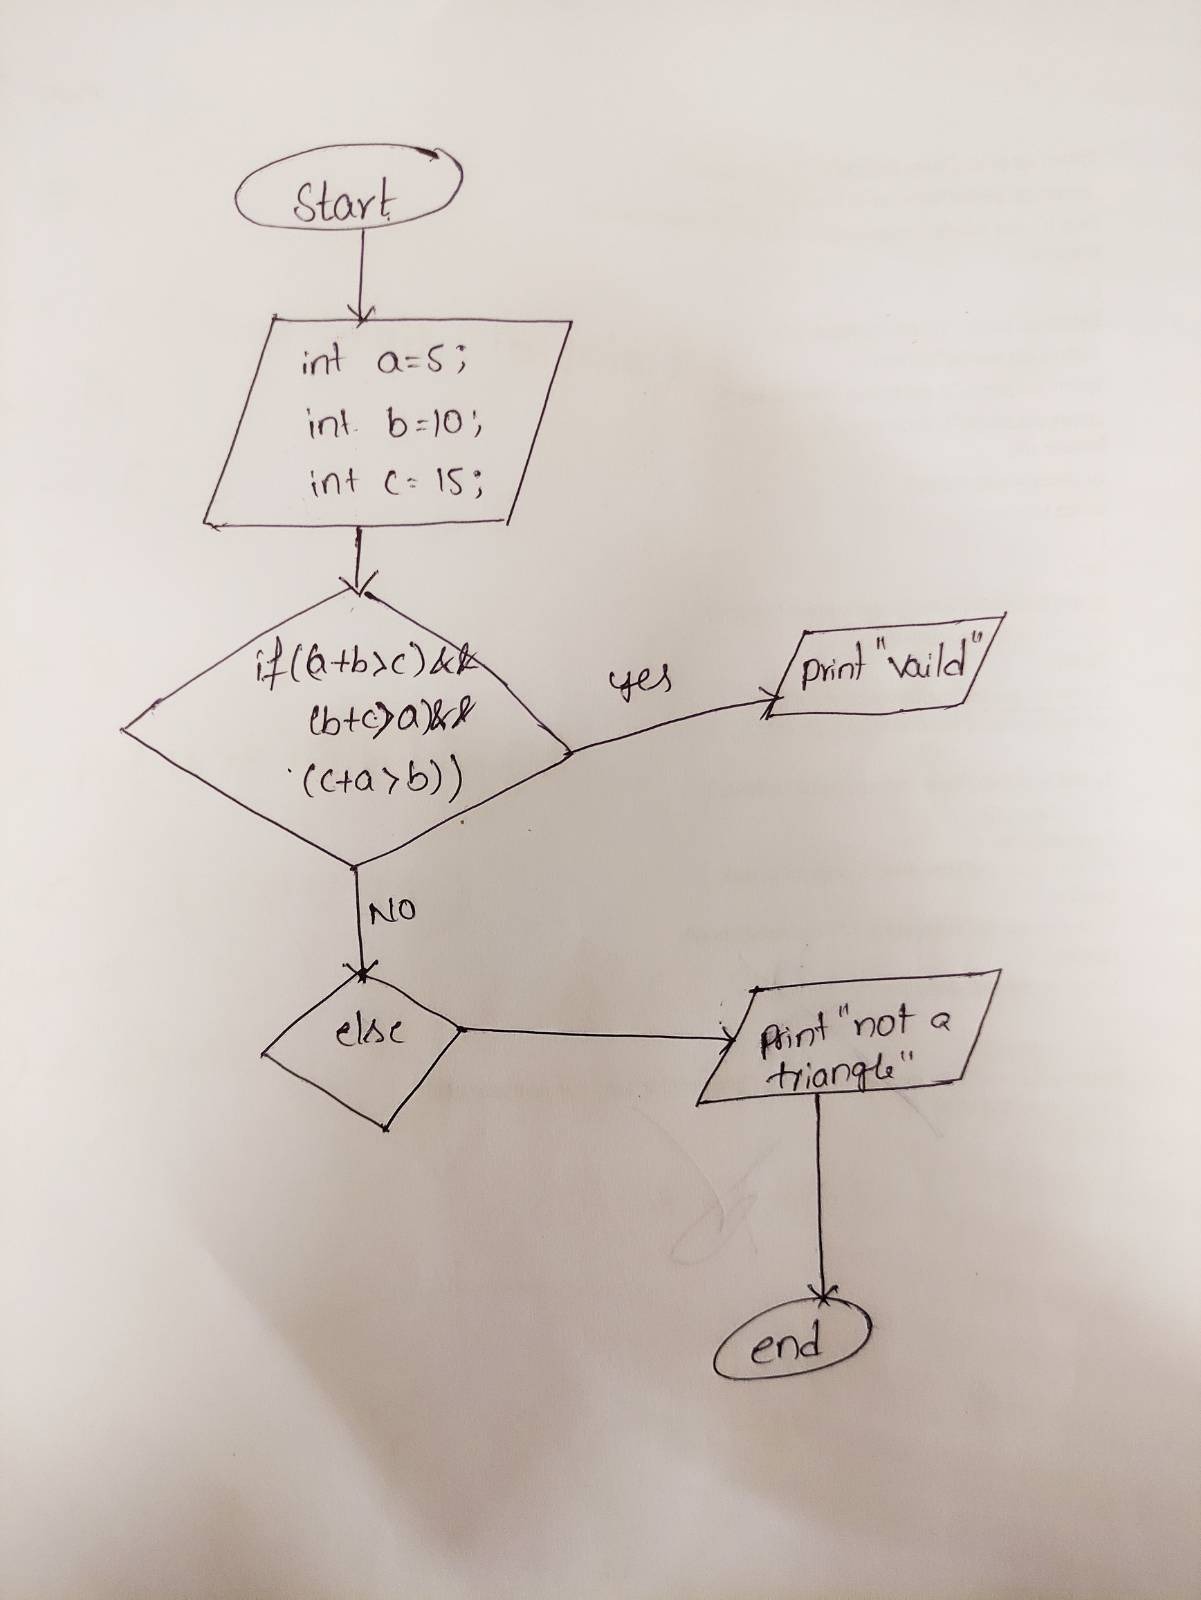 Start
int a=5;
int b=10;
int c=15;
if((a+b>c)&&
(b+c>a)&&
(c+a>b))
yes
print "vaild"
NO
else
print "not a
triangle"
end